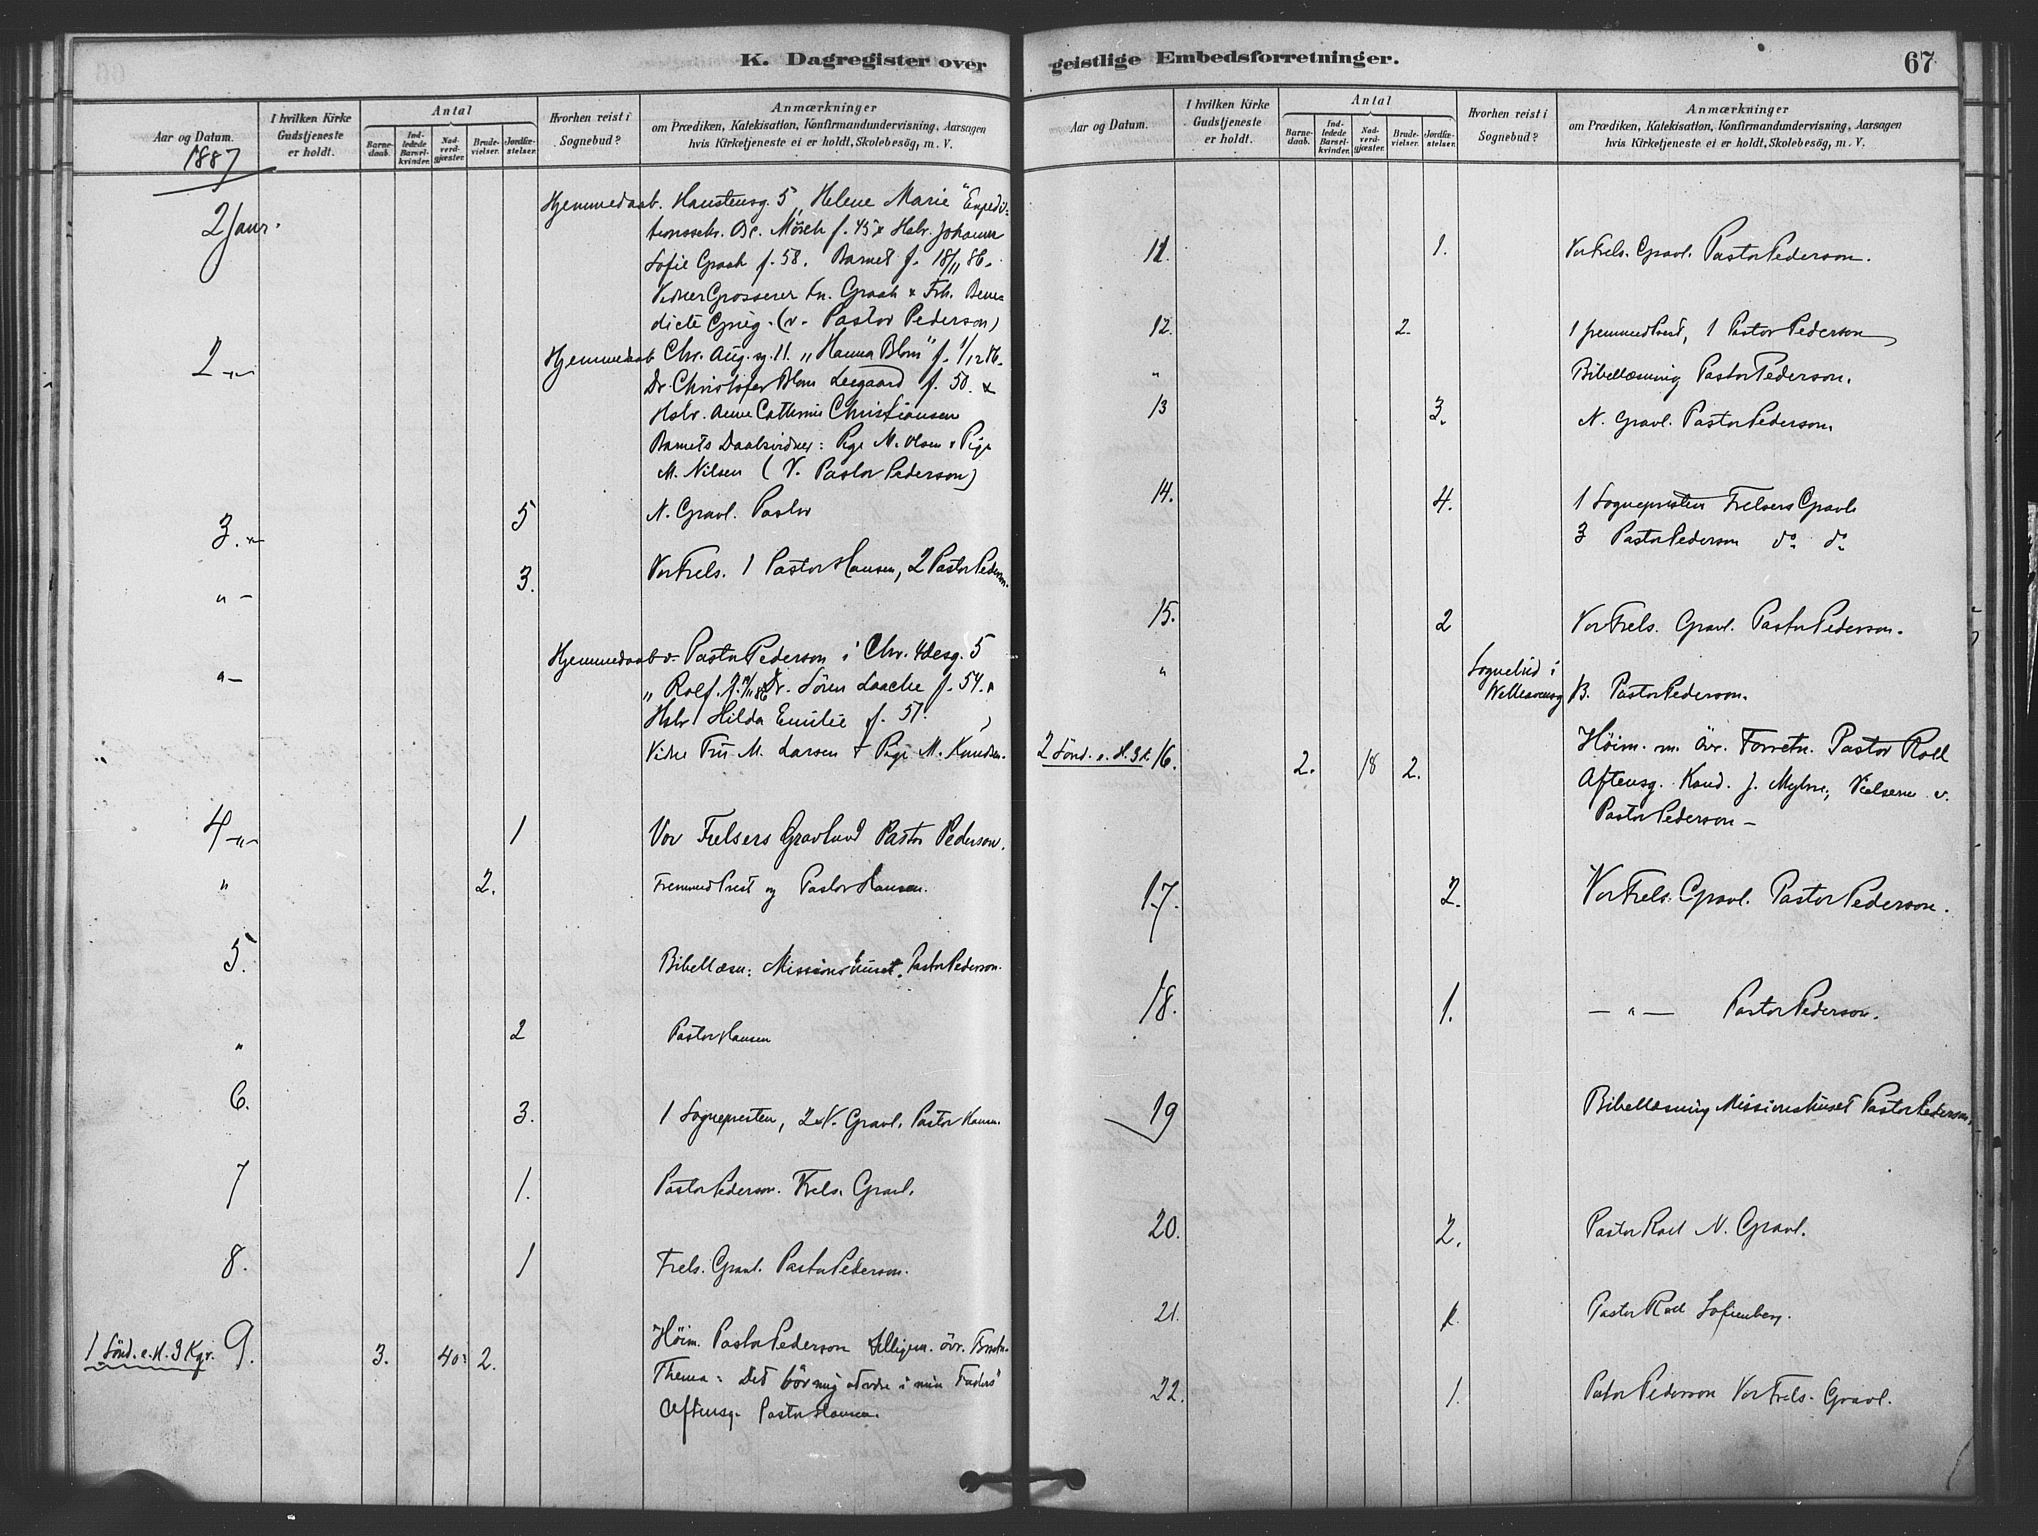 K. Dagregister over
Aar og Datum.
I hvilken Kirke Gudstjeneste er holdt.
Antal
Barnedaab.
Indledede Barselkvinder.
Nadverdgjæster.
Brudevielser.
Jordfæstelser.
Hvorhen reist i Sognebud?
Anmærkninger
om Prædiken, Katekisation, Konfirmandundervisning, Aarsagen
hvis Kirketjeneste ei er holdt, Skolebesøg, m. V.
1887
2 Janr. Hjemmedaab. Haustensg. 5, Helene Marie" Expedi-
tionssekr. Mørch f. 45 & Hstr. Johanne
Sofie Graah f. 58. Barnet f. 18/11 86.
Vidner Grosserer Graah & Frk. Bene-
dicte Grieg. (v. Pastor Pederson)
2 -"- Hjemmedaab Chr. Aug. sg. 11. „Hanna Blom" f. 1/12 86.
Dr. Christofer Blom Leegaard f. 50. &
Hstr. Anne Cathrine Christiansen
Barnets Daabsvidner: Pige M. Olsen & Pige
M. Nilsen (V. Pastor Pederson)
3. -"- 5 N. Gravl. Pastor
" - 3. Vor Frels. 1 Pastor Hansen, 2 Pastor Pederson.
" - Hjemmedaab v. Pastor Pederson i Chr. 4desg. 5
„ Rolf. Dr. Sören Laache f. 54. &
Hstr. Hilda Emilie f. 57.
Vidne Fru M. Larsen & Pige M. Knudsen.
4 -"- 1 Vor Frelsers Gravlund Pastor Pederson.
" 2. Fremmed Prest og Pastor Hansen.
5. Bibellæsn: Missionshuset. Pastor Pederson.
" 2 Pastor Hansen
6. 3. 1 Sognepresten, 2 N. Gravl. Pastor Hansen.
7 1. Pastor Pederson. Frels. Gravl.
8. 1 Frels. Gravl. Pastor Pederson.
1 Sönd. e. H. 3 Kgr. 9. 3. 40. 2. Høim. Pastor Pederson övr. Forretn.
Thema: Det bör mig at være i min Faders"
Aftensg. Pastor Hansen.
geistlige Embedsforretninger.
67
Aar og Datum.
I hvilken Kirke Gudstjeneste er holdt.
Antal
Barnedaab.
Indledede Barselkvinder.
Nadverdgjæster.
Brudevielser.
Jordfæstelser.
Hvorhen reist i Sognebud?
Anmærkninger
om Prædiken, Katekisation, Konfirmandundervisning, Aarsagen
hvis Kirketjeneste ei er holdt, Skolebesøg, m. V.
11. 1. Vor Frels. Gravl. Pastor Pederson.
12. 2. 1 fremmed Prest, 1 Pastor Pederson
" Bibellæsning Pastor Pederson.
13 3. N. Gravl. Pastor Pederson.
14. 4. 1 Sognepresten Frelsers Gravl.
3 Pastor Pederson do do
15. 2 Vor Frels. Gravl. Pastor Pederson.
" Sognebud i
B. Pastor Pederson.
2 Sönd. e. H. 3 k. 16. 2. 18 2. Høim. m. övr. Forretn. Pastor Roll
Aftensg. Kand. J. Myhre; Vielserne v.
Pastor Pederson -
17. 2. Vor Frels. Gravl. Pastor Pederson.
18. 1. - " - Pastor Pederson.
19 Bibellæsning Missionshuset Pastor Pederson.
20. 2. Pastor Roll N. Gravl.
21. 1. Pastor Roll Sofienberg.
22. 1. Pastor Pederson Vor Frels. Gravl.